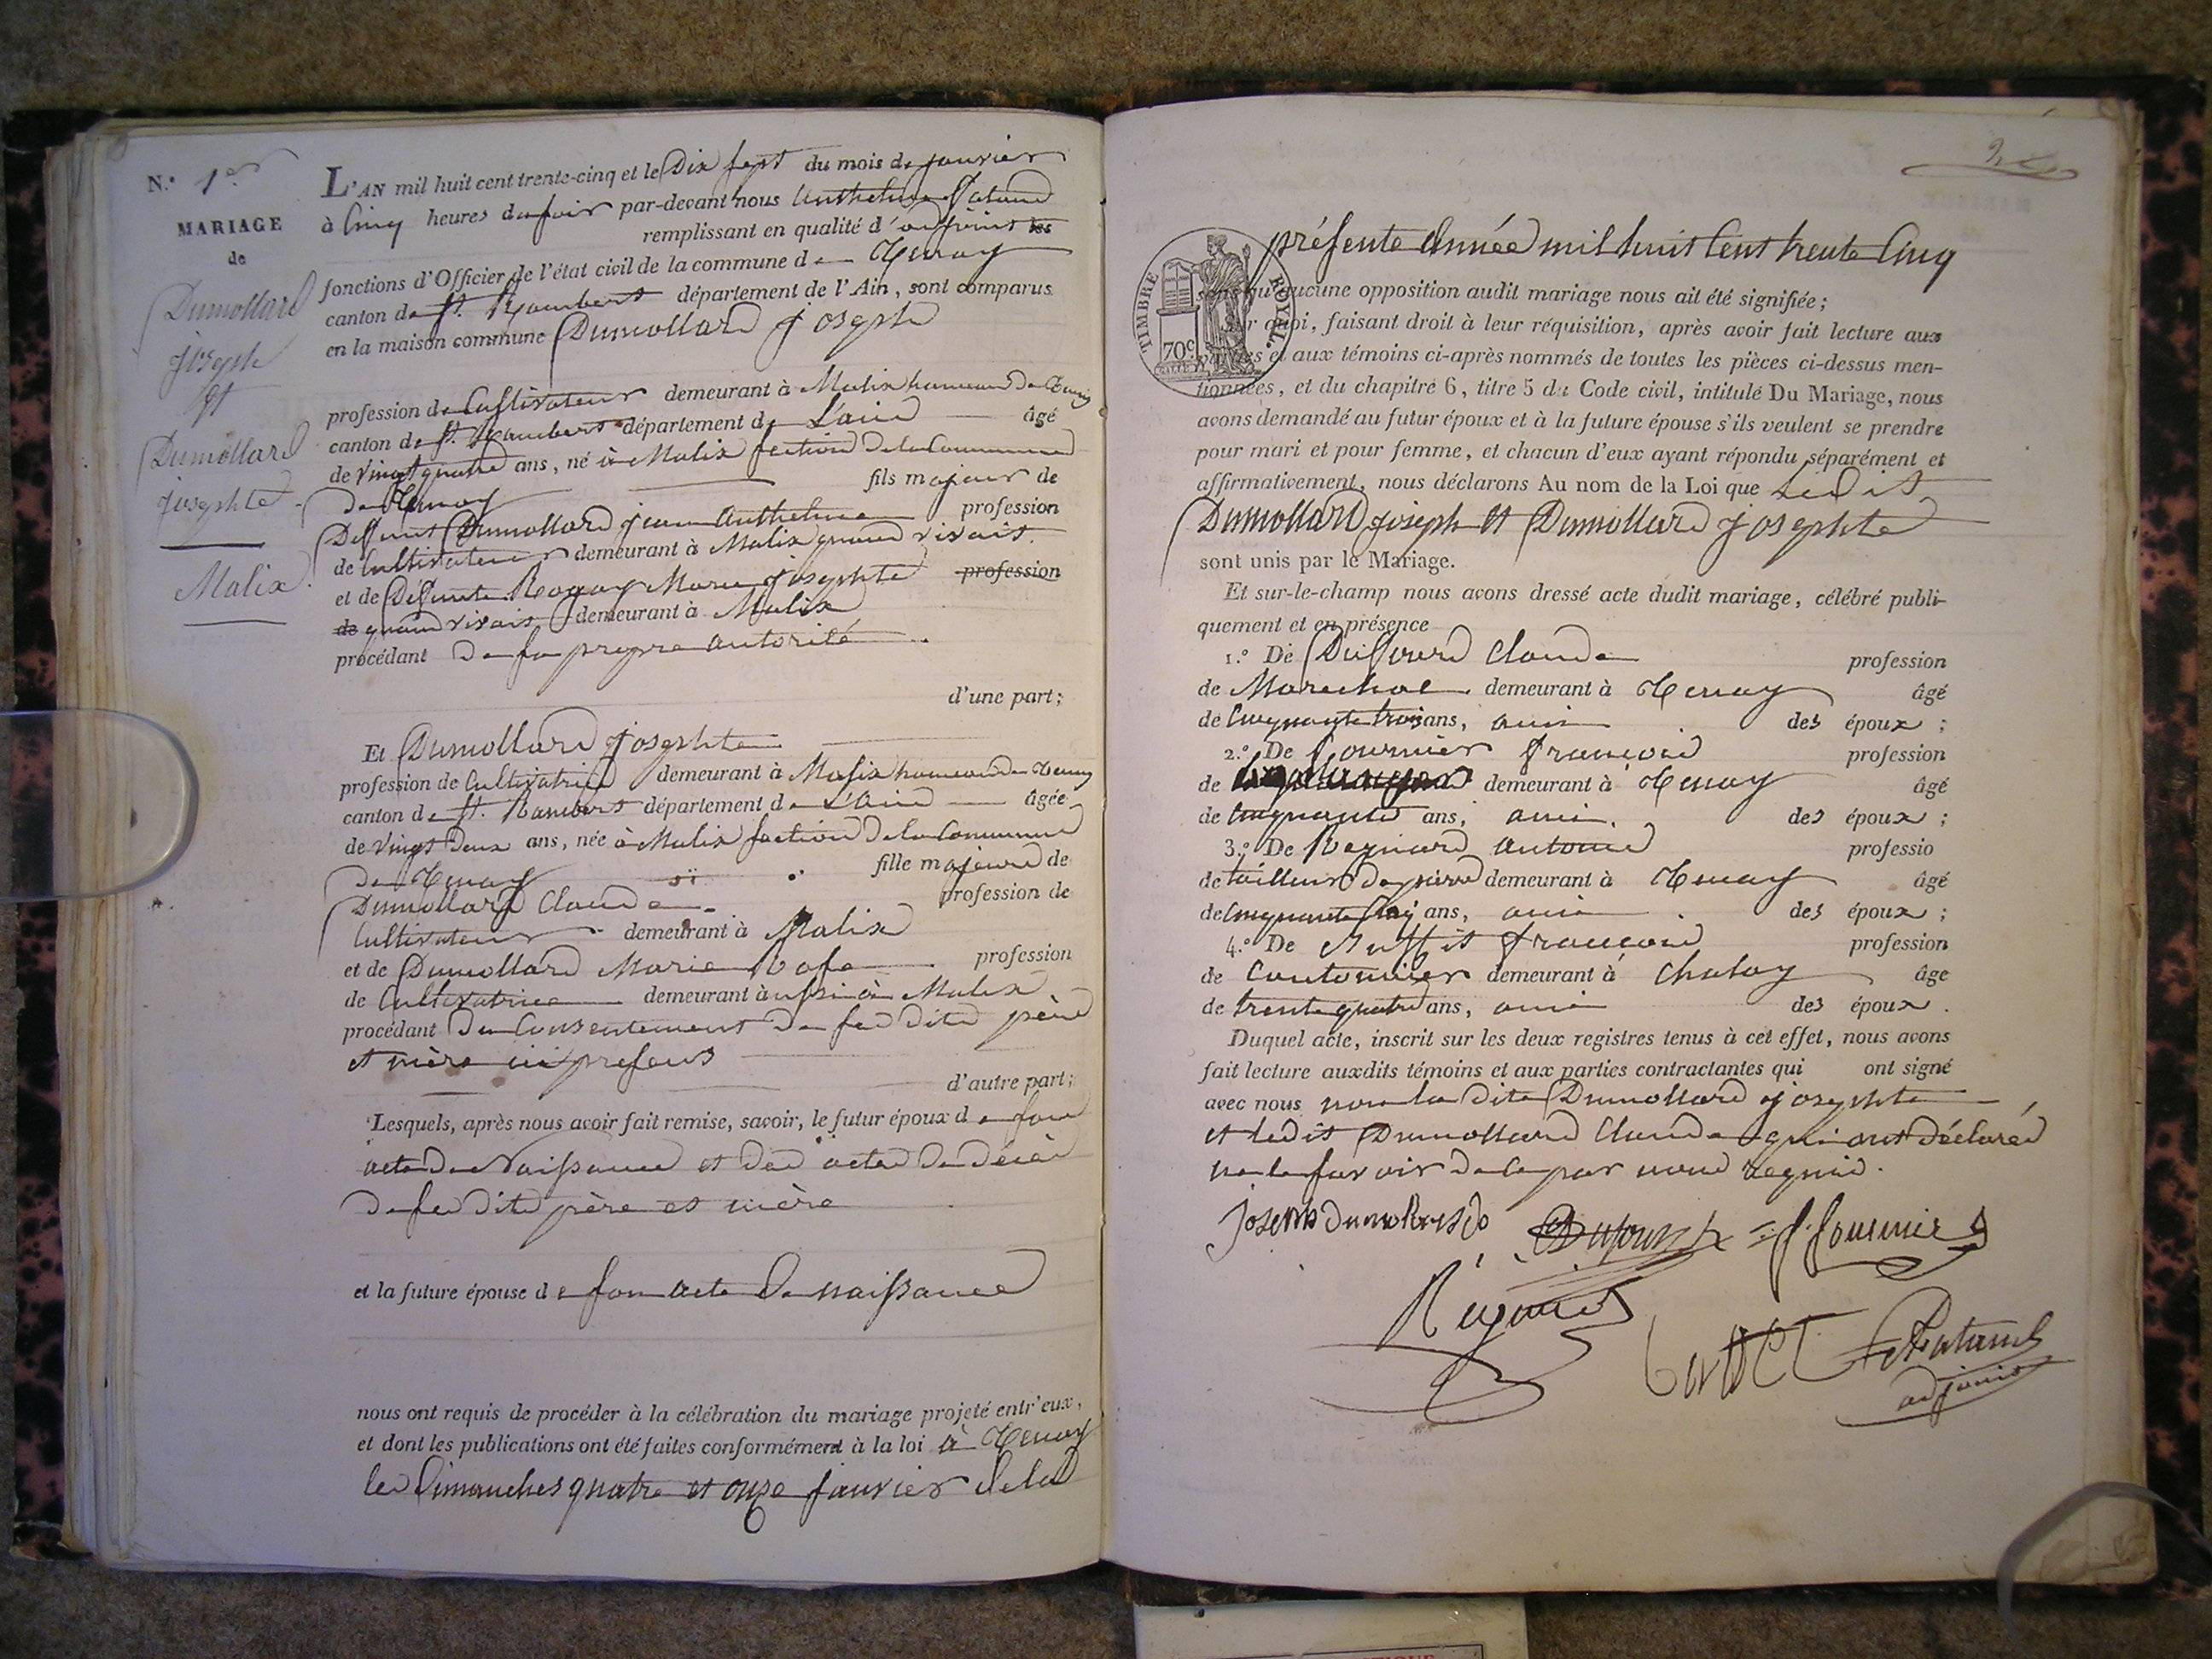 N.° 1er
MARIAGE
de
Dumollard
joseph
Et
Dumollard
josephte
Malix
L'AN mil huit cent trente-cinq et le Dix sept du mois de janvier
à Cinq heures du soir par-devant nous Anthelme
remplissant en qualité d'adjoint les
fonctions d'Officier de l'état civil de la commune de Tenay
canton de St. Rambert département de l'Ain, sont comparus
en la maison commune Dumollard joseph
profession de Cultivateur demeurant à Malix hameau de Tenay
canton de St. Rambert département de L'ain âgé
de vingt quatre ans, né à Malix section De la Commune
de Tenay fils majeur de
Deffunt Dumollard jean Anthelme profession
de Cultivateur demeurant à Malix quand vivait.
et de Défunte Marie josephte profession
de quand vivais demeurant à Malix
procédant De sa propre autorité
d'une part;
Et Dumollard josephte
profession de Cultivatrice demeurant à Malix hameau de Tenay
canton de St. Rambert département de L'Ain âgée
de vingt Deux ans, née à Malix section De la Commune
de Tenay fille majeure de
Dumollard Claude profession de
Cultivateur demeurant à Malix
et de Dumollard Marie Rose profession
de Cultivatrice demeurant aussi à Malix
procédant Du Consentement De ses dits père
et mère ici presens
d'autre part;
Lesquels, après nous avoir fait remise, savoir, le futur époux de son
acte De Naissance et des actes De décès
De ses Dits père et mère
et la future épouse de son acte De naissance
nous ont requis de procéder à la célébration du mariage projeté entr'eux,
et dont les publications ont été faites conformément à la loi à Tenay
les Dimanches quatre et onze janvier de la
2
TIMBRE ROYAL.
70c
présente Année mil huit Cent trente Cinq
sans qu'aucune opposition audit mariage nous ait été signifiée;
Sur quoi, faisant droit à leur réquisition, après avoir fait lecture aux
parties et aux témoins ci-après nommés de toutes les pièces ci-dessus men-
tionnées, et du chapitre 6, titre 5 du Code civil, intitulé Du Mariage, nous
avons demandé au futur époux et à la future épouse s'ils veulent se prendre
pour mari et pour femme, et chacun d'eux ayant répondu séparément et
affirmativement, nous déclarons Au nom de la Loi que Ledit
Dumollard joseph Et Dumollard josephte
sont unis par le Mariage.
Et sur-le-champ nous avons dressé acte dudit mariage, célébré publi-
quement et en présence
1.° De Dufour Claude profession
de Marechal demeurant à Tenay âgé
de Cinquante trois ans, ami des époux;
2.° De Fournier françois profession
de demeurant à Tenay âgé
de Cinquante ans, ami des époux;
3.° De Reynaud Antoine professio
de tailleur De pierre demeurant à Tenay âgé
de Cinquante Cinq ans, ami des époux;
4.° De françois profession
de Cantonnier demeurant à Chaley âge
de trente quatre ans, ami des époux.
Duquel acte, inscrit sur les deux registres tenus à cet effet, nous avons
fait lecture auxdits témoins et aux parties contractantes qui ont signé
avec nous non la Dite Dumollard josephte
et ledit Dumollard Claude qui ont déclaré
ne le savoir De ce par nous requis.
Joseph Dumollard Dufour f. fournier
adjoint